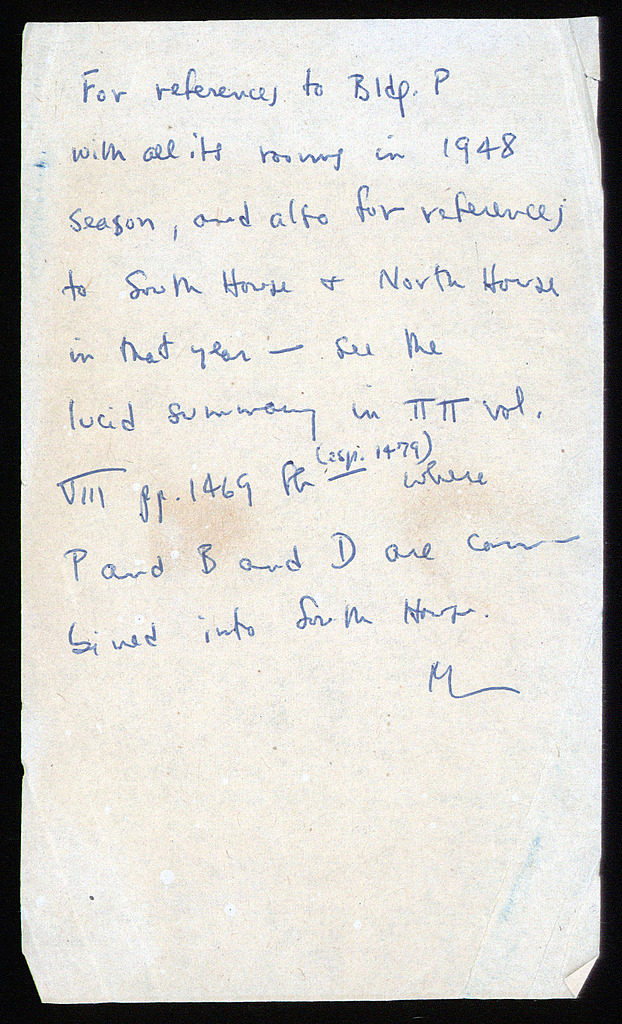 For references to Bldg. P
with all its rooms in 1948
season, and also for references
to South House & North House
in that year — see the
lucid summary in ΠΠ vol.
VIII pp. 1469 ff (esp. 1479) where
P and B and D are com-
bined into South House.
M